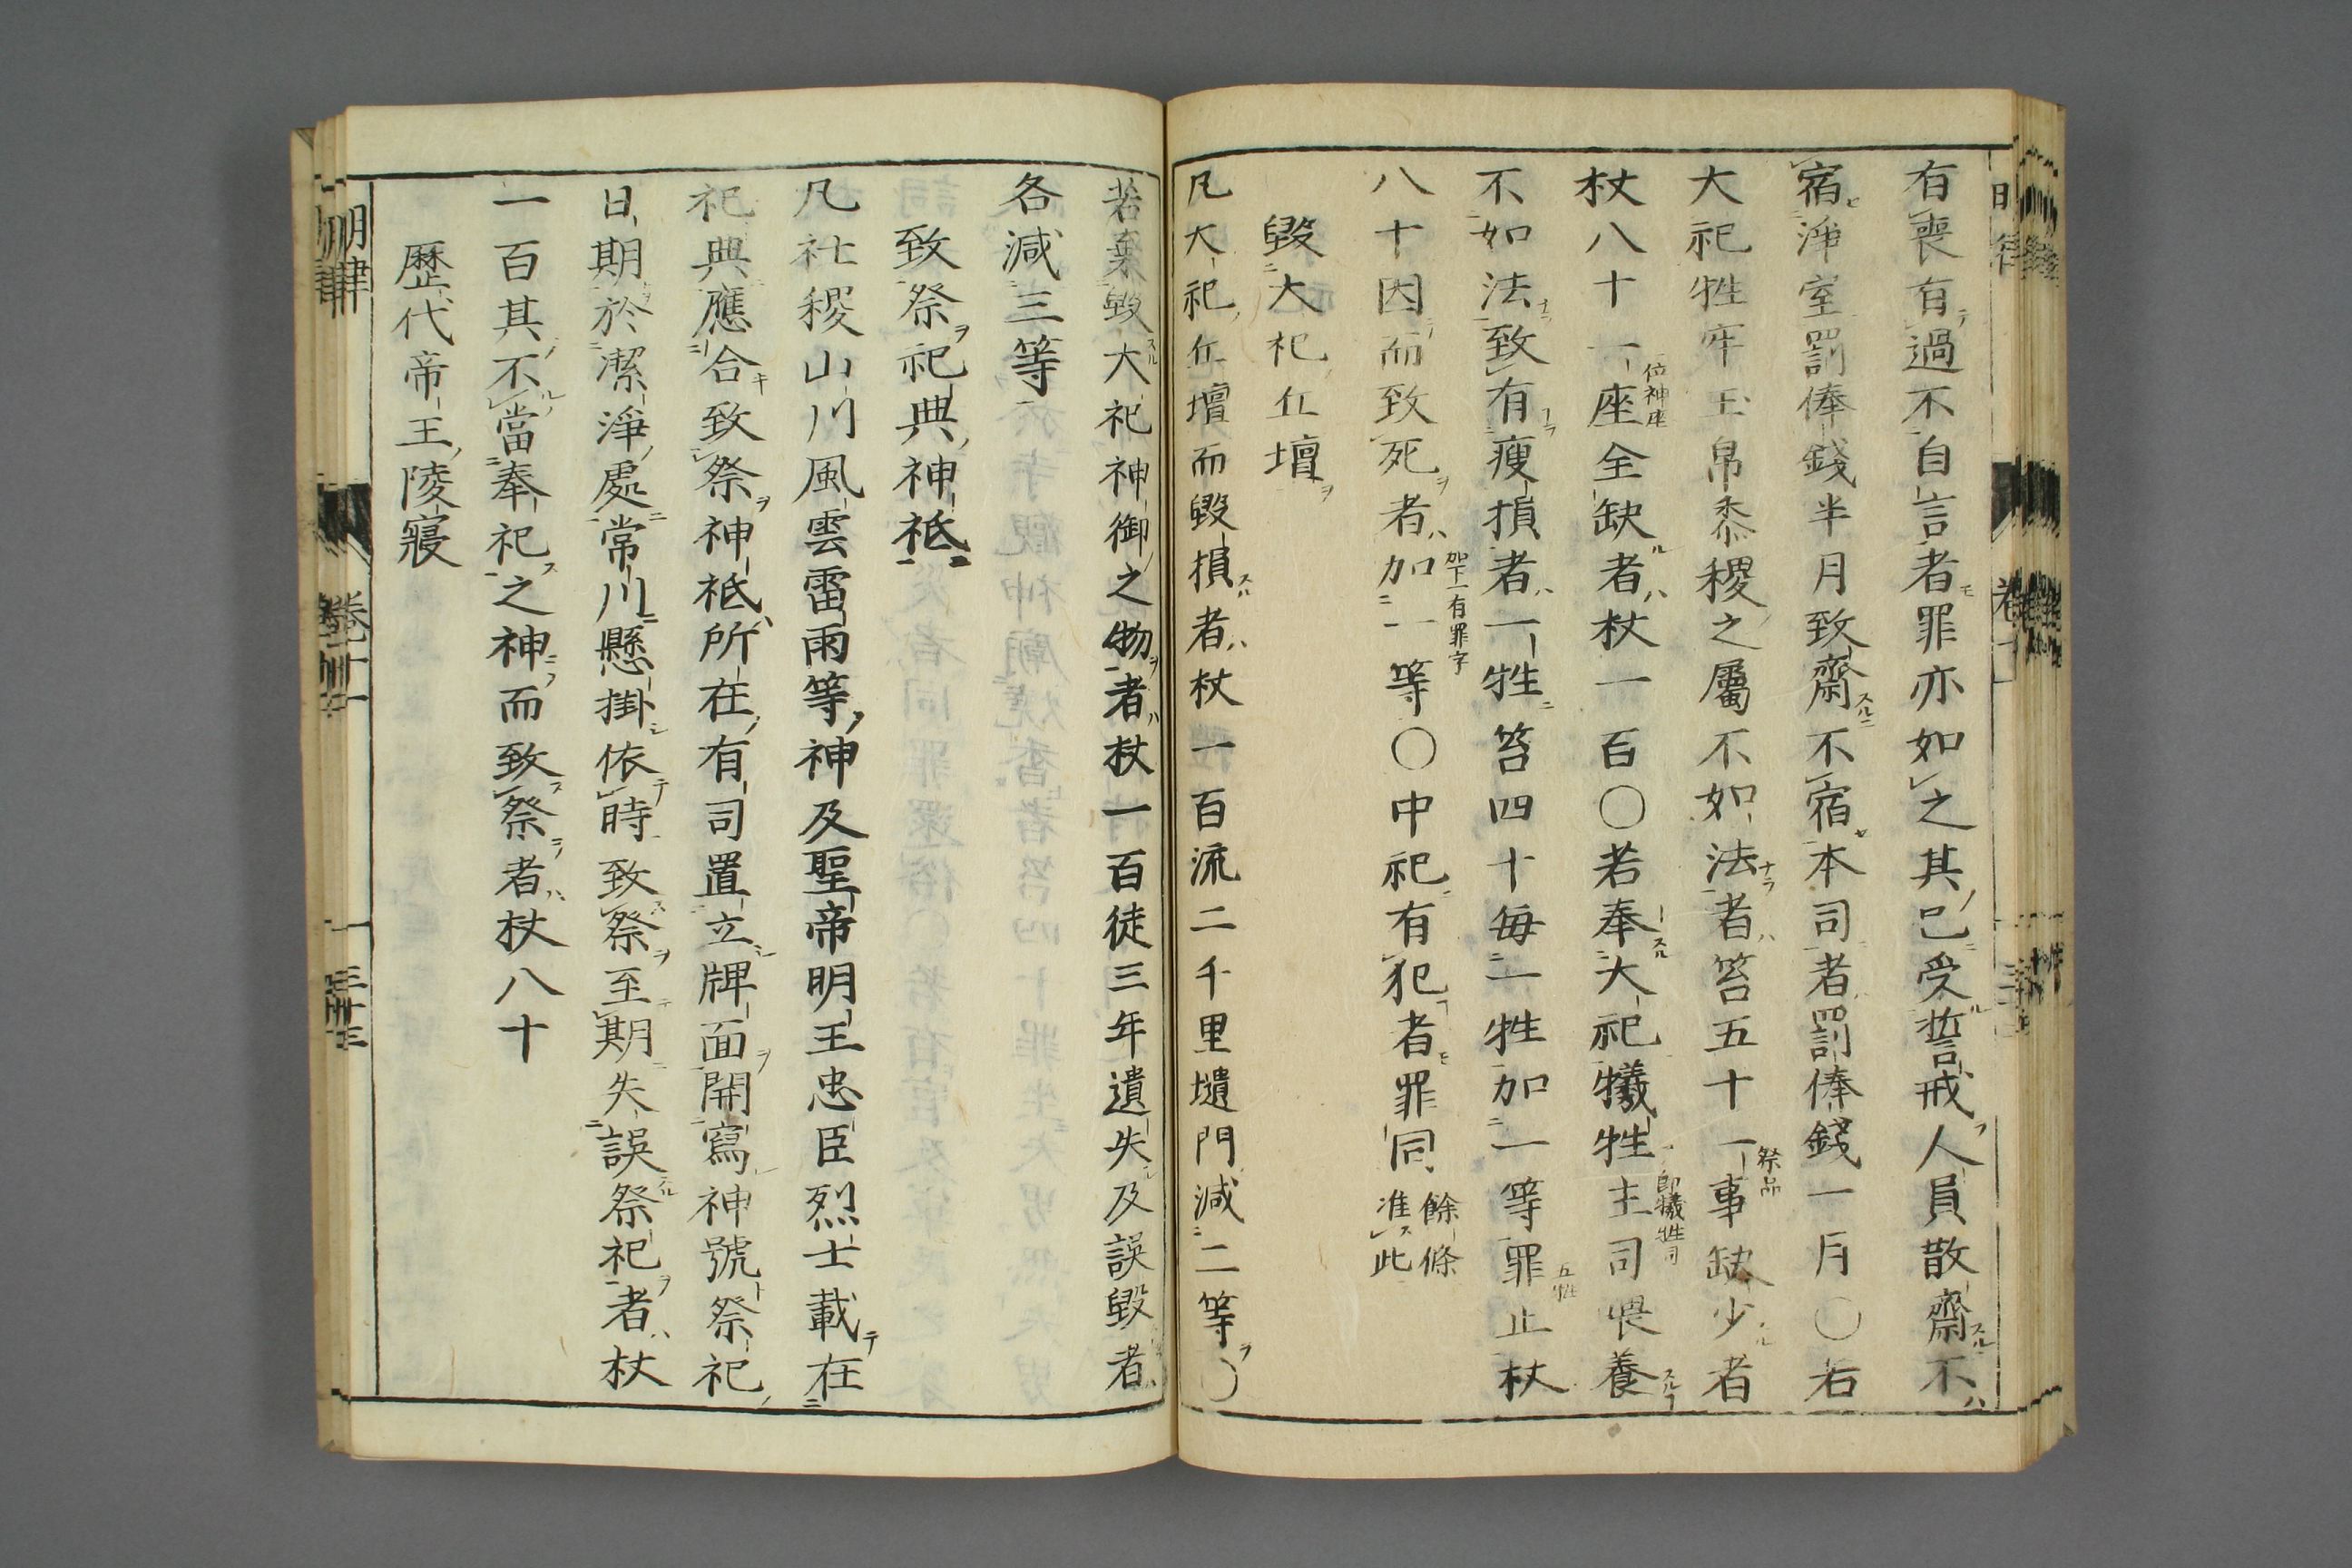 有喪有過不自言者罪亦如之其已受誓戒人員散齋不
宿淨室罰俸錢半月致齋不宿本司者罰俸錢一月〇若
大祀牲牢玉帛黍稷之屬不如法者笞五十一事缺少者
祭品
杖八十一座全缺者杖一百〇若奉大祀犧牲主司喂養
位神座
即犧牲司
不如法致有瘦損者一牲笞四十每一牲加一等罪止杖
五牲
八十因而致死者加一等〇中祀有犯者罪同餘條准此
加下一有罪字
毀大祀丘壇
凡大祀丘壇而毀損者杖一百流二千里壝門減二等〇
若棄毀大祀神御之物者杖一百徒三年遺失及誤毀者
各減三等
致祭祀典神祇
凡社稷山川風雲雷雨等神及聖帝明王忠臣烈士載在
祀典應合致祭神祇所在有司置立牌面開寫神號祭祀
日期於潔淨處常川懸掛依時致祭至期失誤祭祀者杖
一百其不當奉祀之神而致祭者杖八十
歷代帝王陵寢
明律 卷十一 三十三